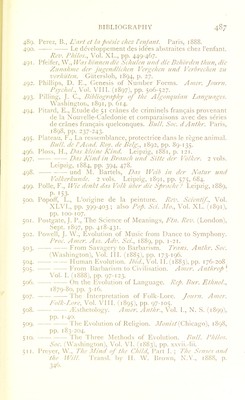 BIBLIOGRAPHY 457
489. Perez, B., L'art et la poésie chez l'enfant. Paris, 1888.
490. ——— Le développement des idées abstraites chez l'enfant.
Rev. Philos., Vol. XL., pp. 449-467.
491. Pfeifer, W., Was können die Schulen und die Behörden thun, die
Zunahme der jugendlichen Vergehen und Verbrechen zu
verhüten. Gütersloh, 1894, p. 27.
492. Phillips, D. E., Genesis of Number Forms. Amer. Journ.
Psychol., Vol. VIII. (1897), pp. 506-527.
493. Pilling, J. C., Bibliography of the Algonquian Languages.
Washington, 1891, p. 614.
494. Pitard, E., Étude de 51 crânes de criminels français provenant
de la Nouvelle-Calédonie et comparaisons avec des séries
de crânes français quelconques. Bull. Soc. d'Anthr. Paris,
1898, pp. 237-243.
495. Plateau, F., La ressemblance protectrice dans le règne animal.
Bull. de l'Acad. Roy. de Belg., 1892, pp. 89-135.
496. Ploss, H., Das kleine Kind. Leipzig, 1881, p. 121.
497. ——— Das Kind in Brauch und Sitte der Völker. 2 vols.
Leipzig, 1884, pp. 394, 478.
498. ——— und M. Bartels, Das Weib in der Natur und
Völkerkunde. 2 vols. Leipzig, 1891, pp. 575, 684.
499. Polle, F., Wie denkt das Volk über die Sprache? Leipzig, 1889,
p. 153.
500. Popoff, L., L'origine de la peinture. Rev. Scientif., Vol.
XLVI., pp. 399-403; also Pop. Sci. Mo., Vol. XL. (1891),
pp. 100-107.
501. Postgate, J. P., The Science of Meanings, Ftn. Rev. (London),
Sept. 1897, pp. 418-431.
502. Powell, J. W., Evolution of Music from Dance to Symphony.
Proc. Amer. Ass. Adv. Sci., 1889, pp. 1-21.
503. ——— From Savagery to Barbarism. Trans. Anthr. Soc.
(Washington), Vol. III. (1885), pp. 173-196.
504. ——— Human Evolution. Ibid., Vol. II. (1883), pp. 176-208.
505. ——— From Barbarism to Civilisation. Amer. Anthrop.,
Vol. I. (1888), pp. 97-123.
506. ——— On the Evolution of Language. Rep. Bur. Ethnol.,
1879-80, pp. 3-16.
507. ——— The Interpretation of Folk-Lore. Journ. Amer.
Folk-Lore, Vol. VIII. (1895), pp. 97-105.
508. ——— Æsthetology. Amer. Anthr., Vol. I., N. S. (1899),
pp. 1-40.
509. ——— The Evolution of Religion. Monist (Chicago), 1898,
pp. 183-204.
510. ——— The Three Methods of Evolution. Bull. Philos.
Soc. (Washington), Vol. VI. (1883), pp. xxvii-lii.
511. Preyer, W., The Mind of the Child, Part I.; The Senses and
the Will. Transl. by H. W. Brown, N.Y., 1888, p.
346.